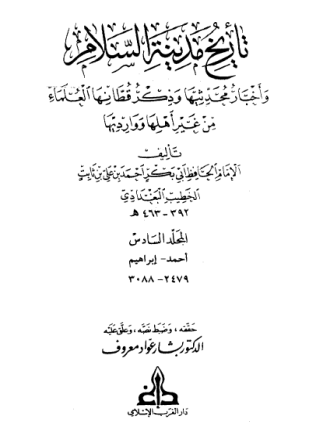 تأريخ مدينة السلام
وأخبار محدثيها وذكر قطانها العلماء
من غير أهلها ووارديها
تأليف
الإمام الحافظ أبي بكر أحمد بن علي بن ثابت
الخطيب البغدادي
٣٩٢ - ٤٦٣ هـ
المجلد السادس
أحمد - إبراهيم
٢٤٧٩ - ٣٠٨٨
حققه، وضبط نصه، وعلق عليه
الدكتور بشار عواد معروف
دار الغرب الإسلامي